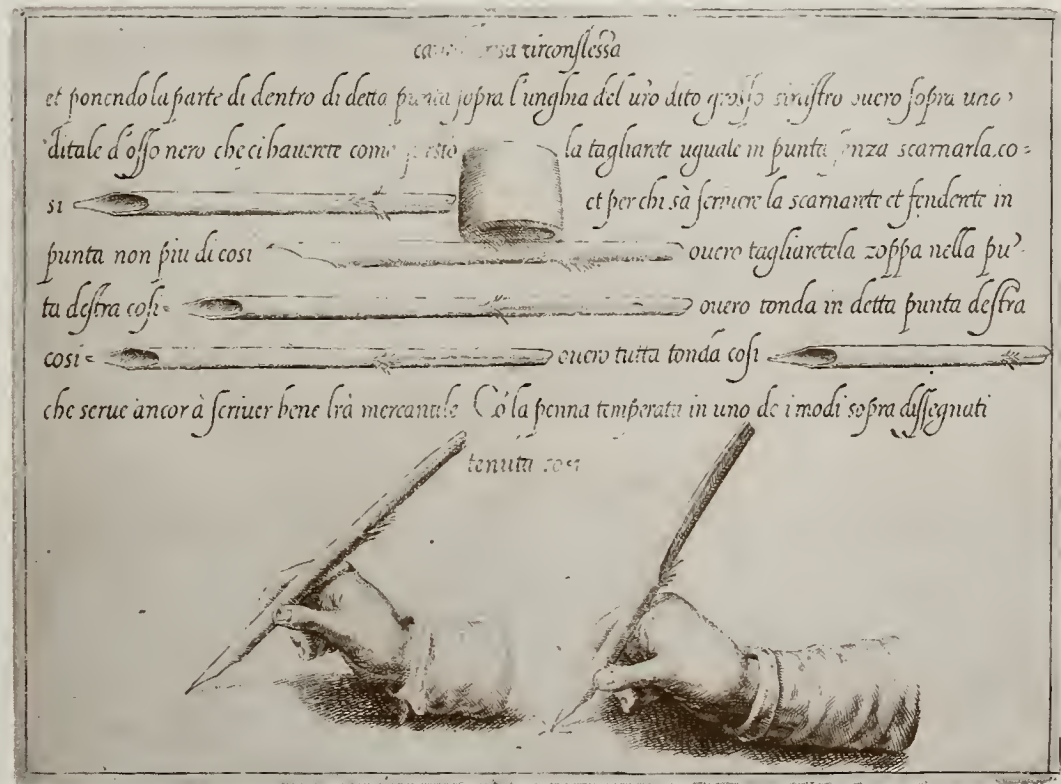 circonflessa
et ponendo la parte di dentro di detta punta sopra l'unghia del uro dito grosso sinistro ouero sopra uno
ditale d'osso nero che ci hauerete come questo la tagliarete uguale in punta senza scarnarla.co=
si et per chi sà scriuere la scarnarete et fenderete in
punta non piu di cosi ouero tagliaretela zoppa nella pu~
ta destra cosi= ouero tonda in detta punta destra
cosi= ouero tutta tonda cosi
che serue ancor à scriuer bene lrà mercantile Cō la penna temperata in uno de i modi sopra dissegnati
tenuta cosi